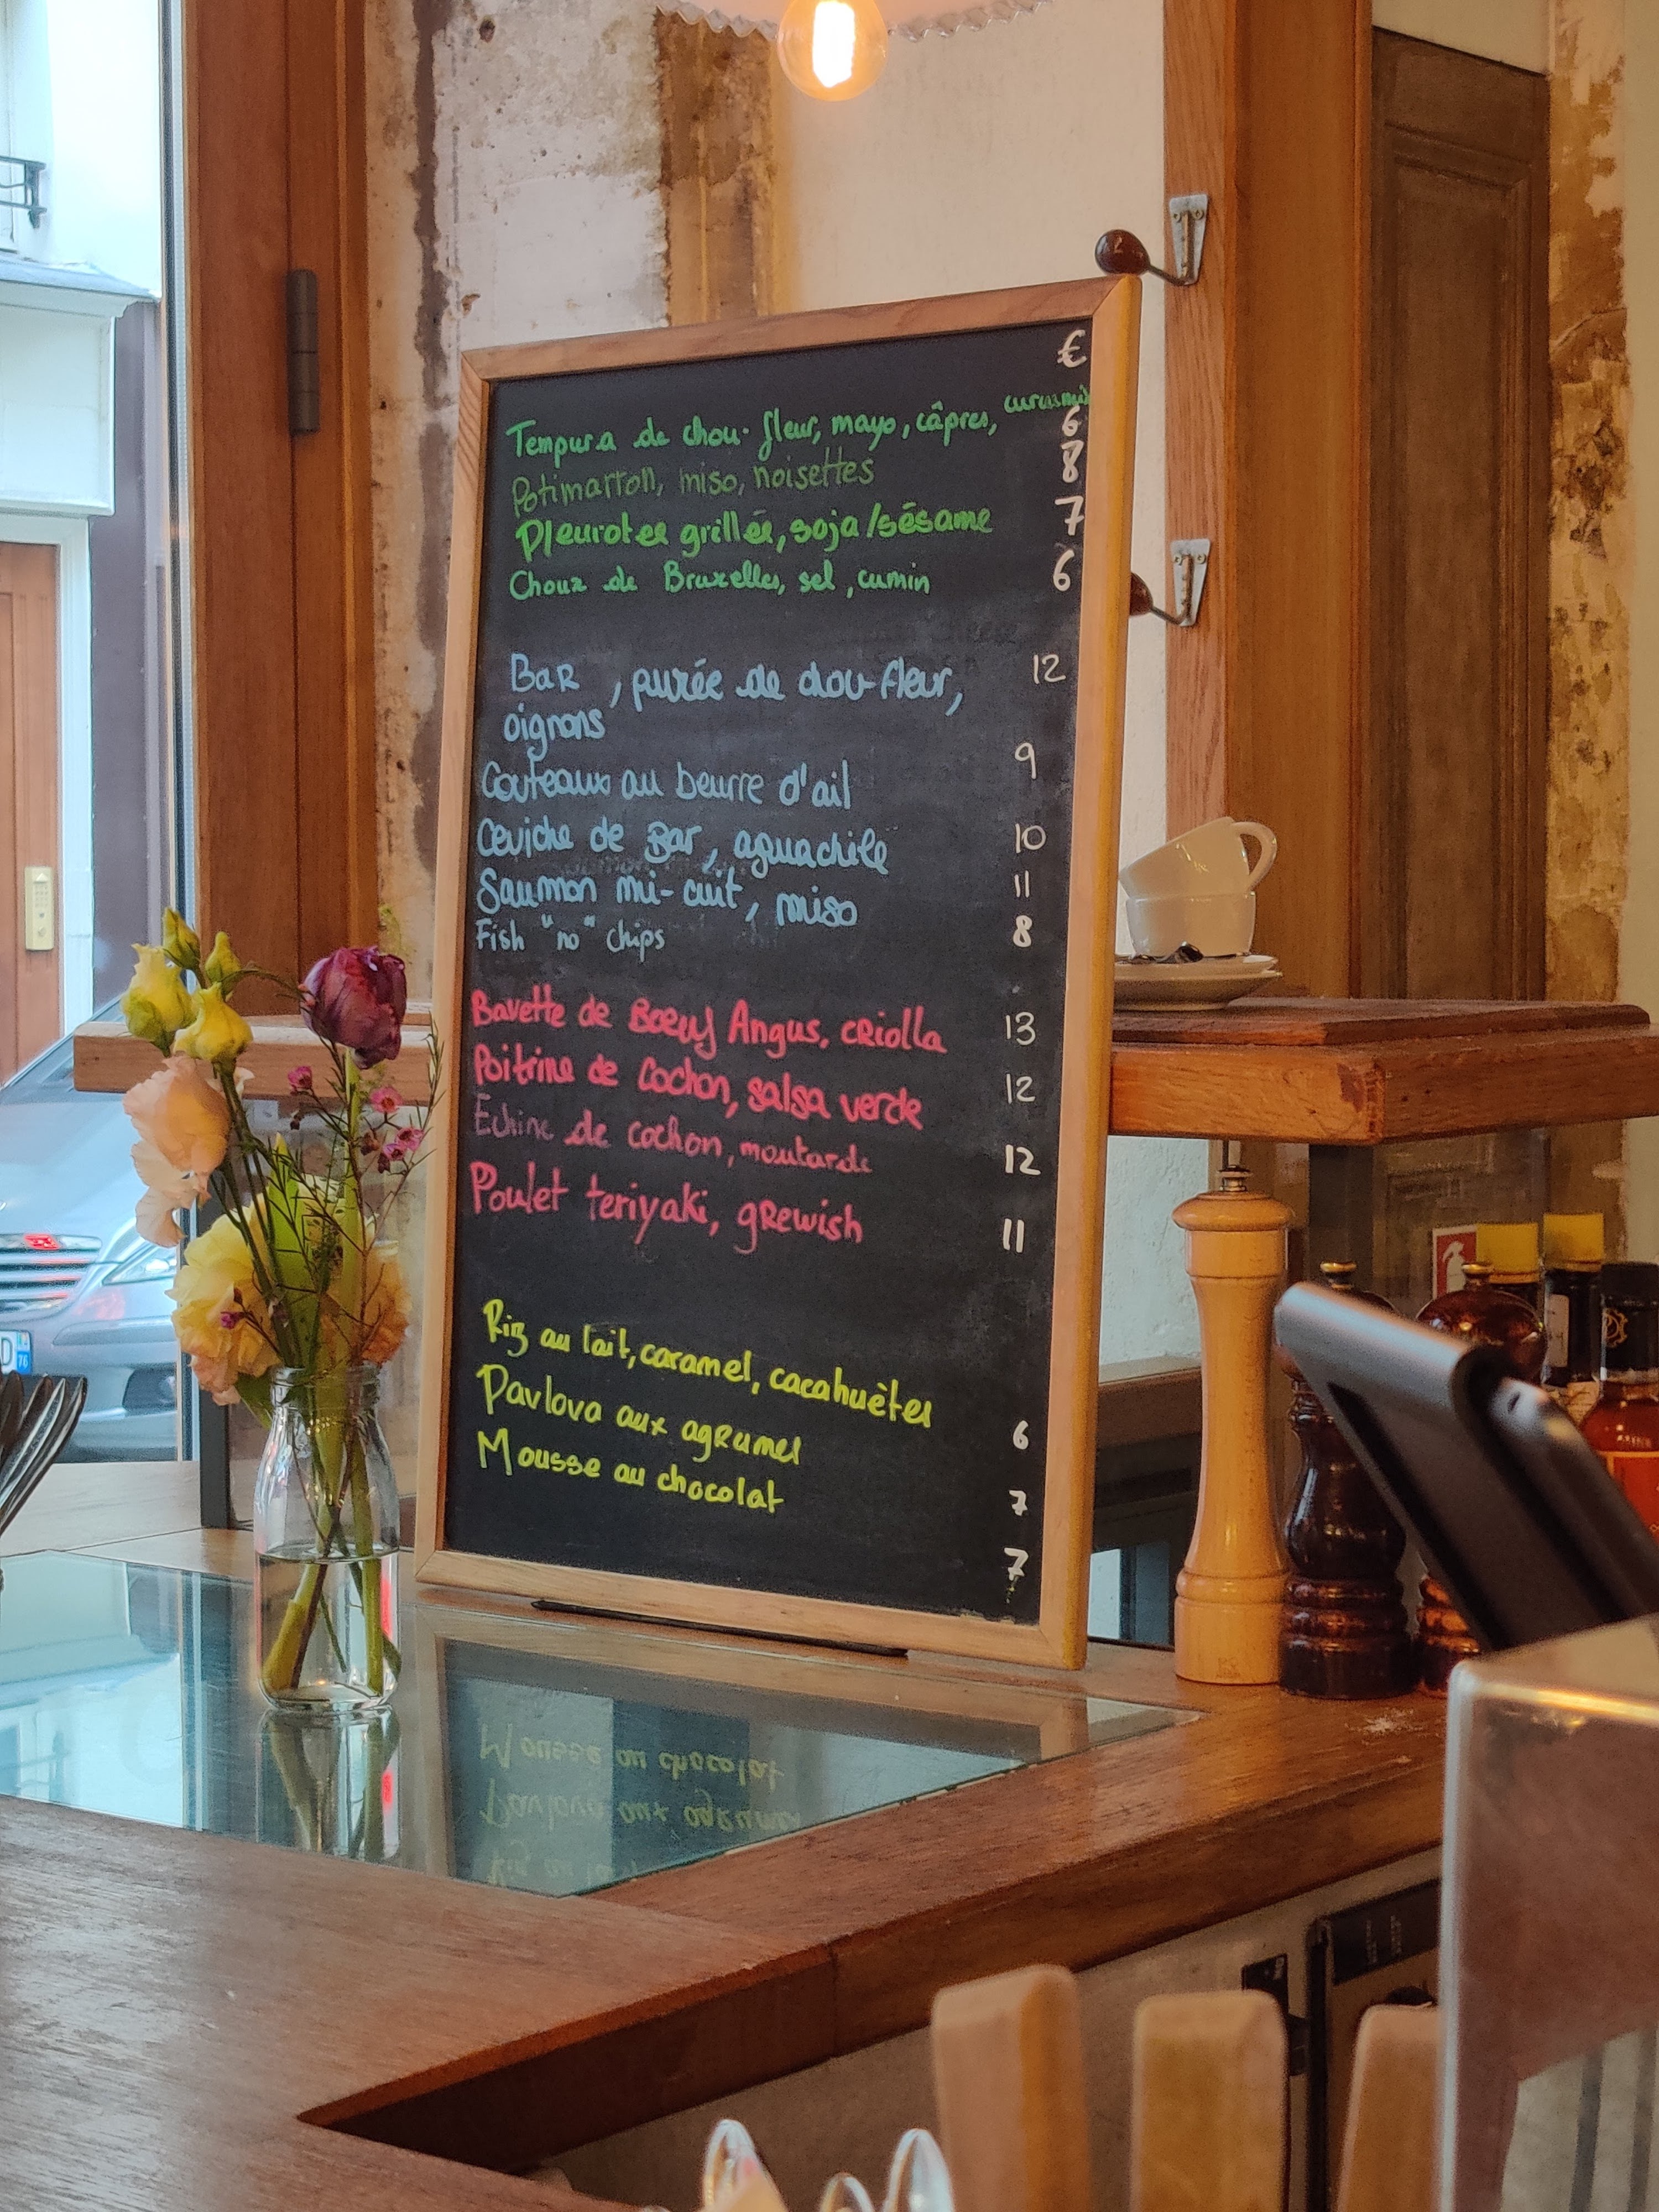 €
Tempura de chou-fleur, mayo, câpres, 6
Potimarron, miso, noisettes 8
Pleurotes grillés, soja/sésame 7
Choux de Bruxelles, sel, cumin 6
Bar, purée de chou-fleur, 12
oignons
Couteaux au beurre d'ail 9
Ceviche de Bar, aguachile 10
Saumon mi-cuit, miso 11
Fish "no" chips 8
Bavette de Bœuf Angus, criolla 13
Poitrine de Cochon, salsa verde 12
Echine de cochon, moutarde 12
Poulet teriyaki, grewish 11
Riz au lait, caramel, cacahuètes 6
Pavlova aux agrumes 7
Mousse au chocolat 7
D
76